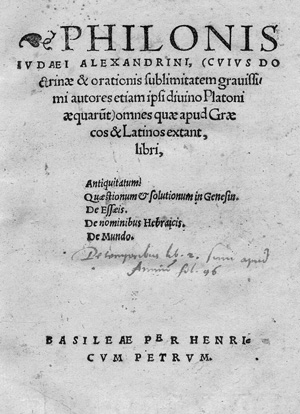 PHILONIS
IVDAEI ALEXANDRINI, (CVIVS DO
ctrinæ & orationis sublimitatem gravissi
mi autores etiam ipsi divino Platoni
æquarũt) omnes quæ apud Græ
cos & Latinos extant,
libri,
Antiquitatum
Quæstionum & solutionum in Genesin.
De Essæis.
De nominibus Hebraicis.
De Mundo.
De temporibus lib. 2.
BASILEAE PER HENRI
CVM PETRVM.